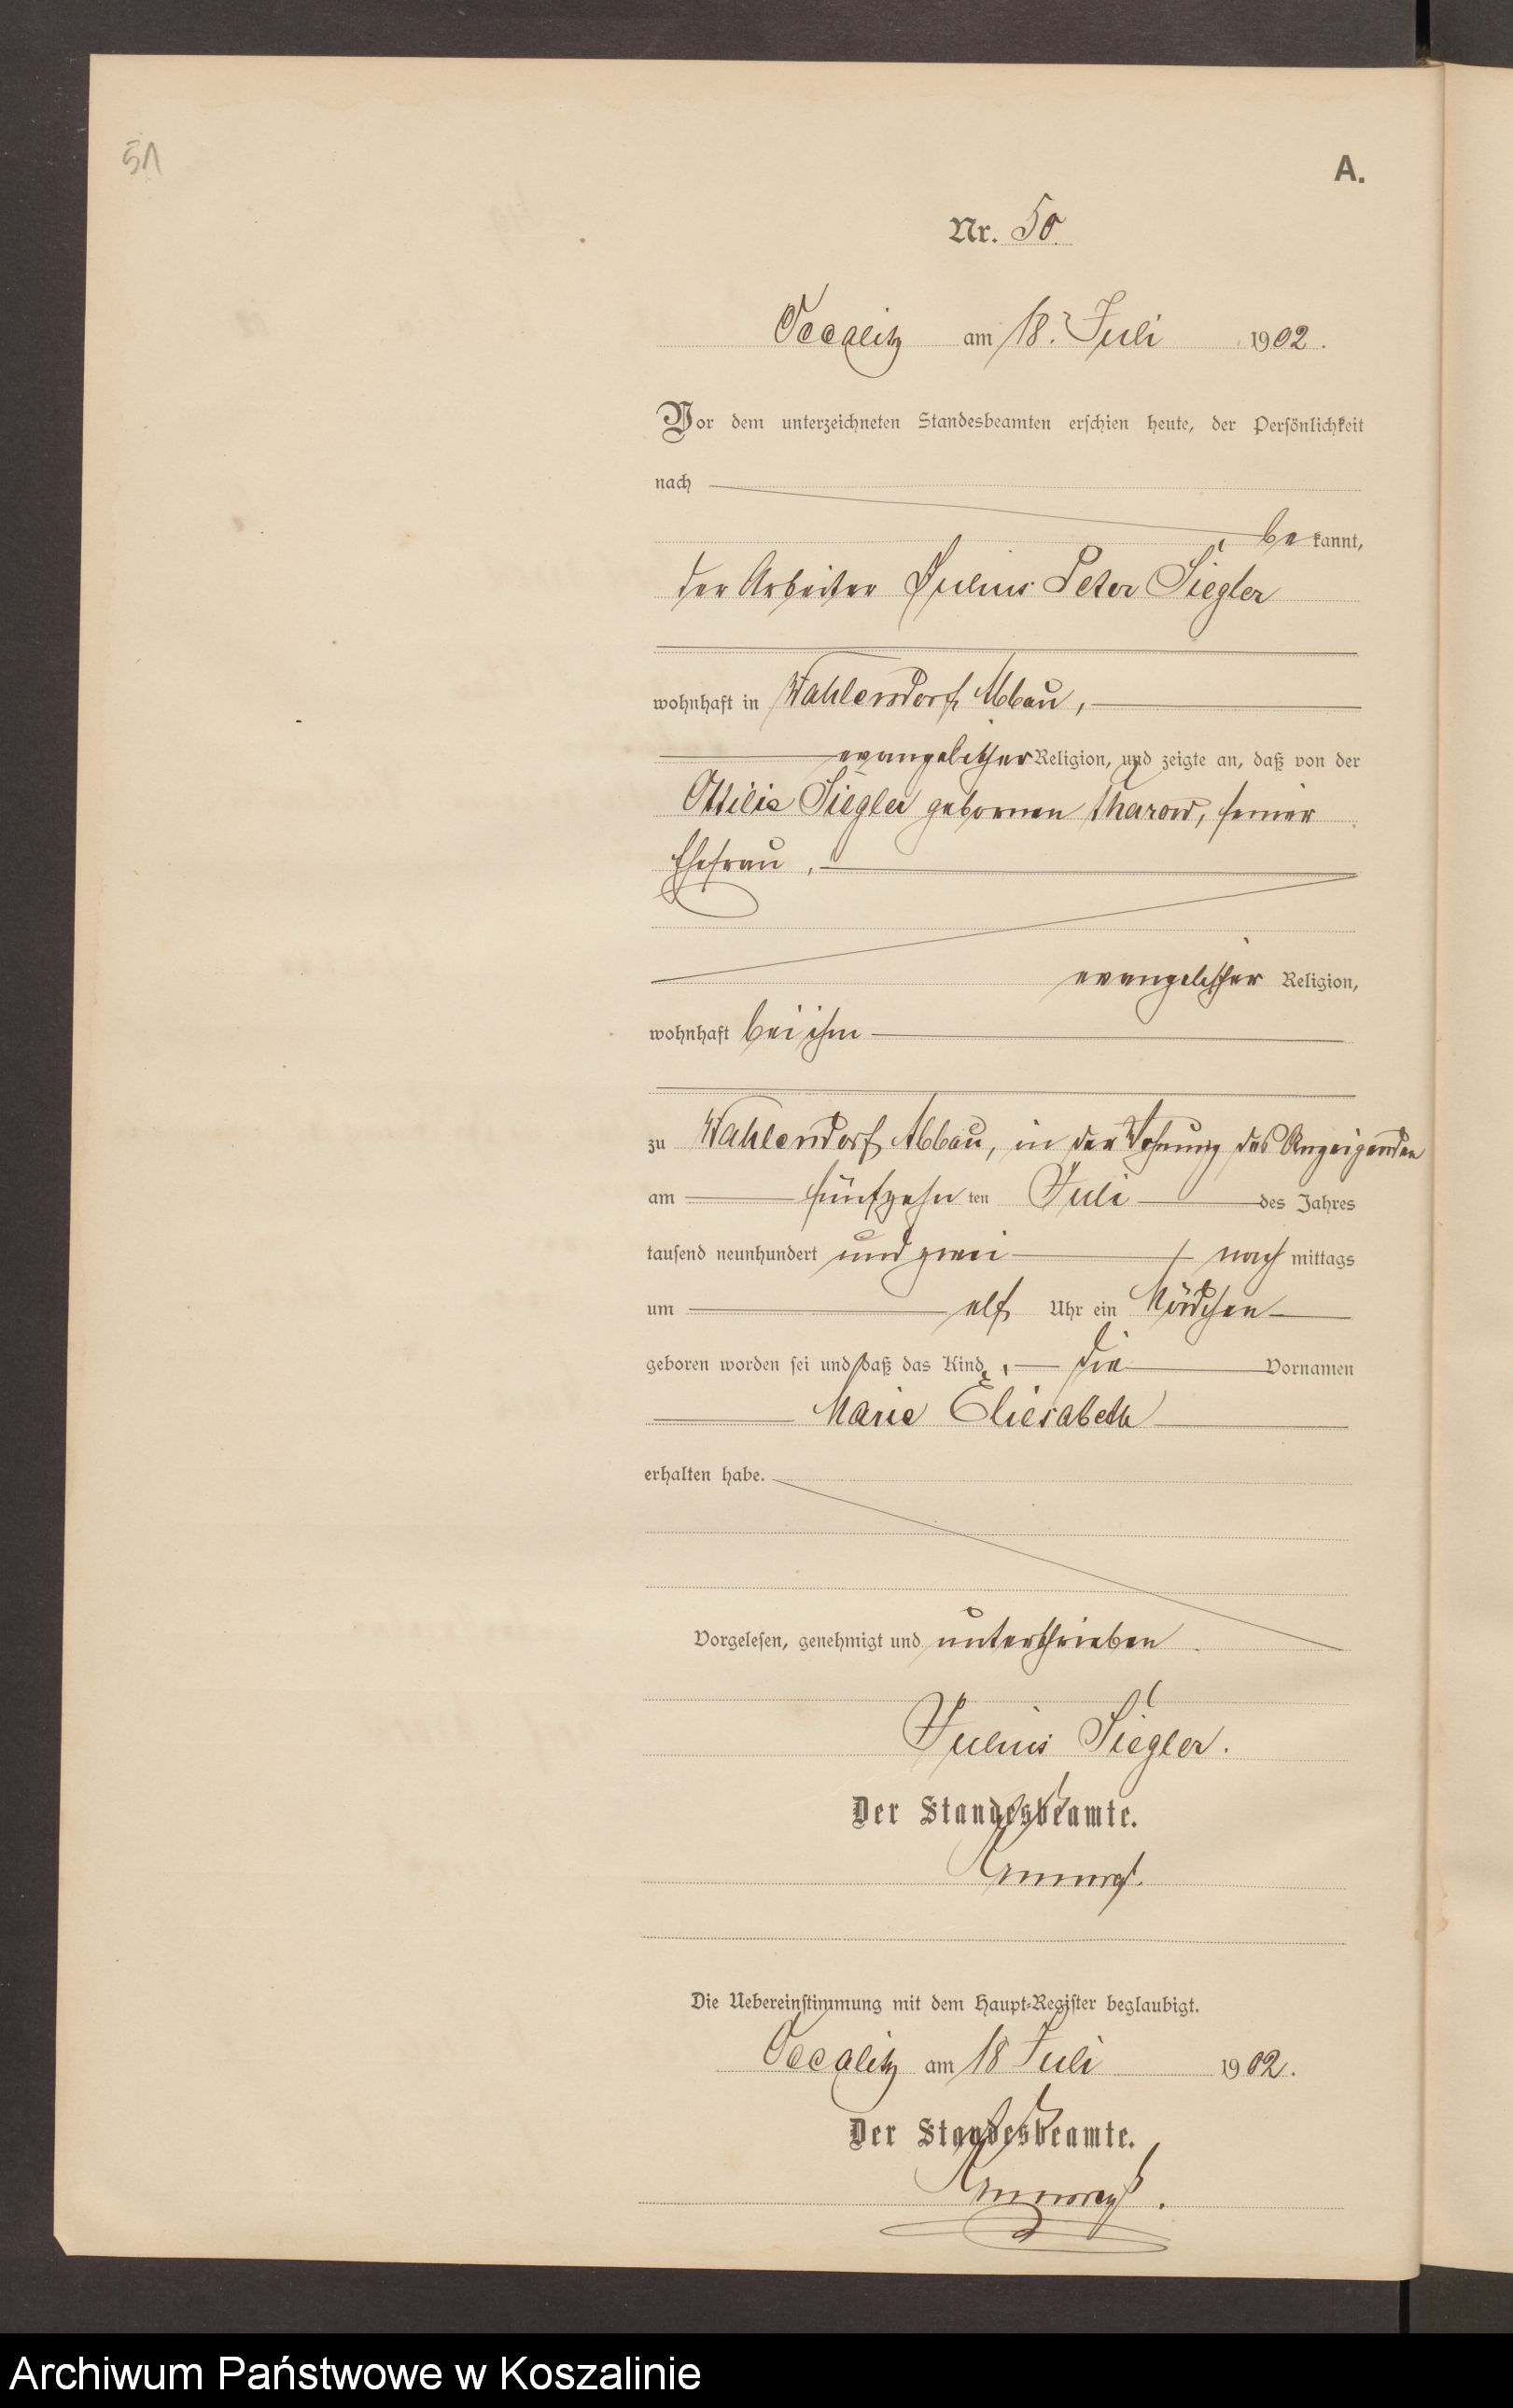 51
A.
Nr. 50
Occalitz am 18. Juli 1902.
Vor dem unterzeichneten Standesbeamten erschien heute, der Persönlichkeit
nach
bekannt,
der Arbeiter Julius Peter Siegler
wohnhaft in Wahlendorf, Abbau,
evangelischer Religion, und zeigte an, daß von der
Ottilie Siegler gebornen Tharow, seiner
Ehefrau,
evangelischer Religion,
wohnhaft bei ihm
zu Wahlendorf Abbau, in der Wohnung des Anzeigenden
am fünfzehn ten Juli des Jahres
tausend neunhundert und zwei nach mittags
um elf Uhr ein Mädchen
geboren worden sei und daß das Kind, die Vornamen
Marie Eliesabeth
erhalten habe.
Vorgelesen, genehmigt und unterschrieben
Julius Siegler.
Der Standesbeamte.
Die Uebereinstimmung mit dem Haupt-Register beglaubigt.
Occalitz am 18 Juli 1902.
Der Standesbeamte.
Archiwum Państwowe w Koszalinie